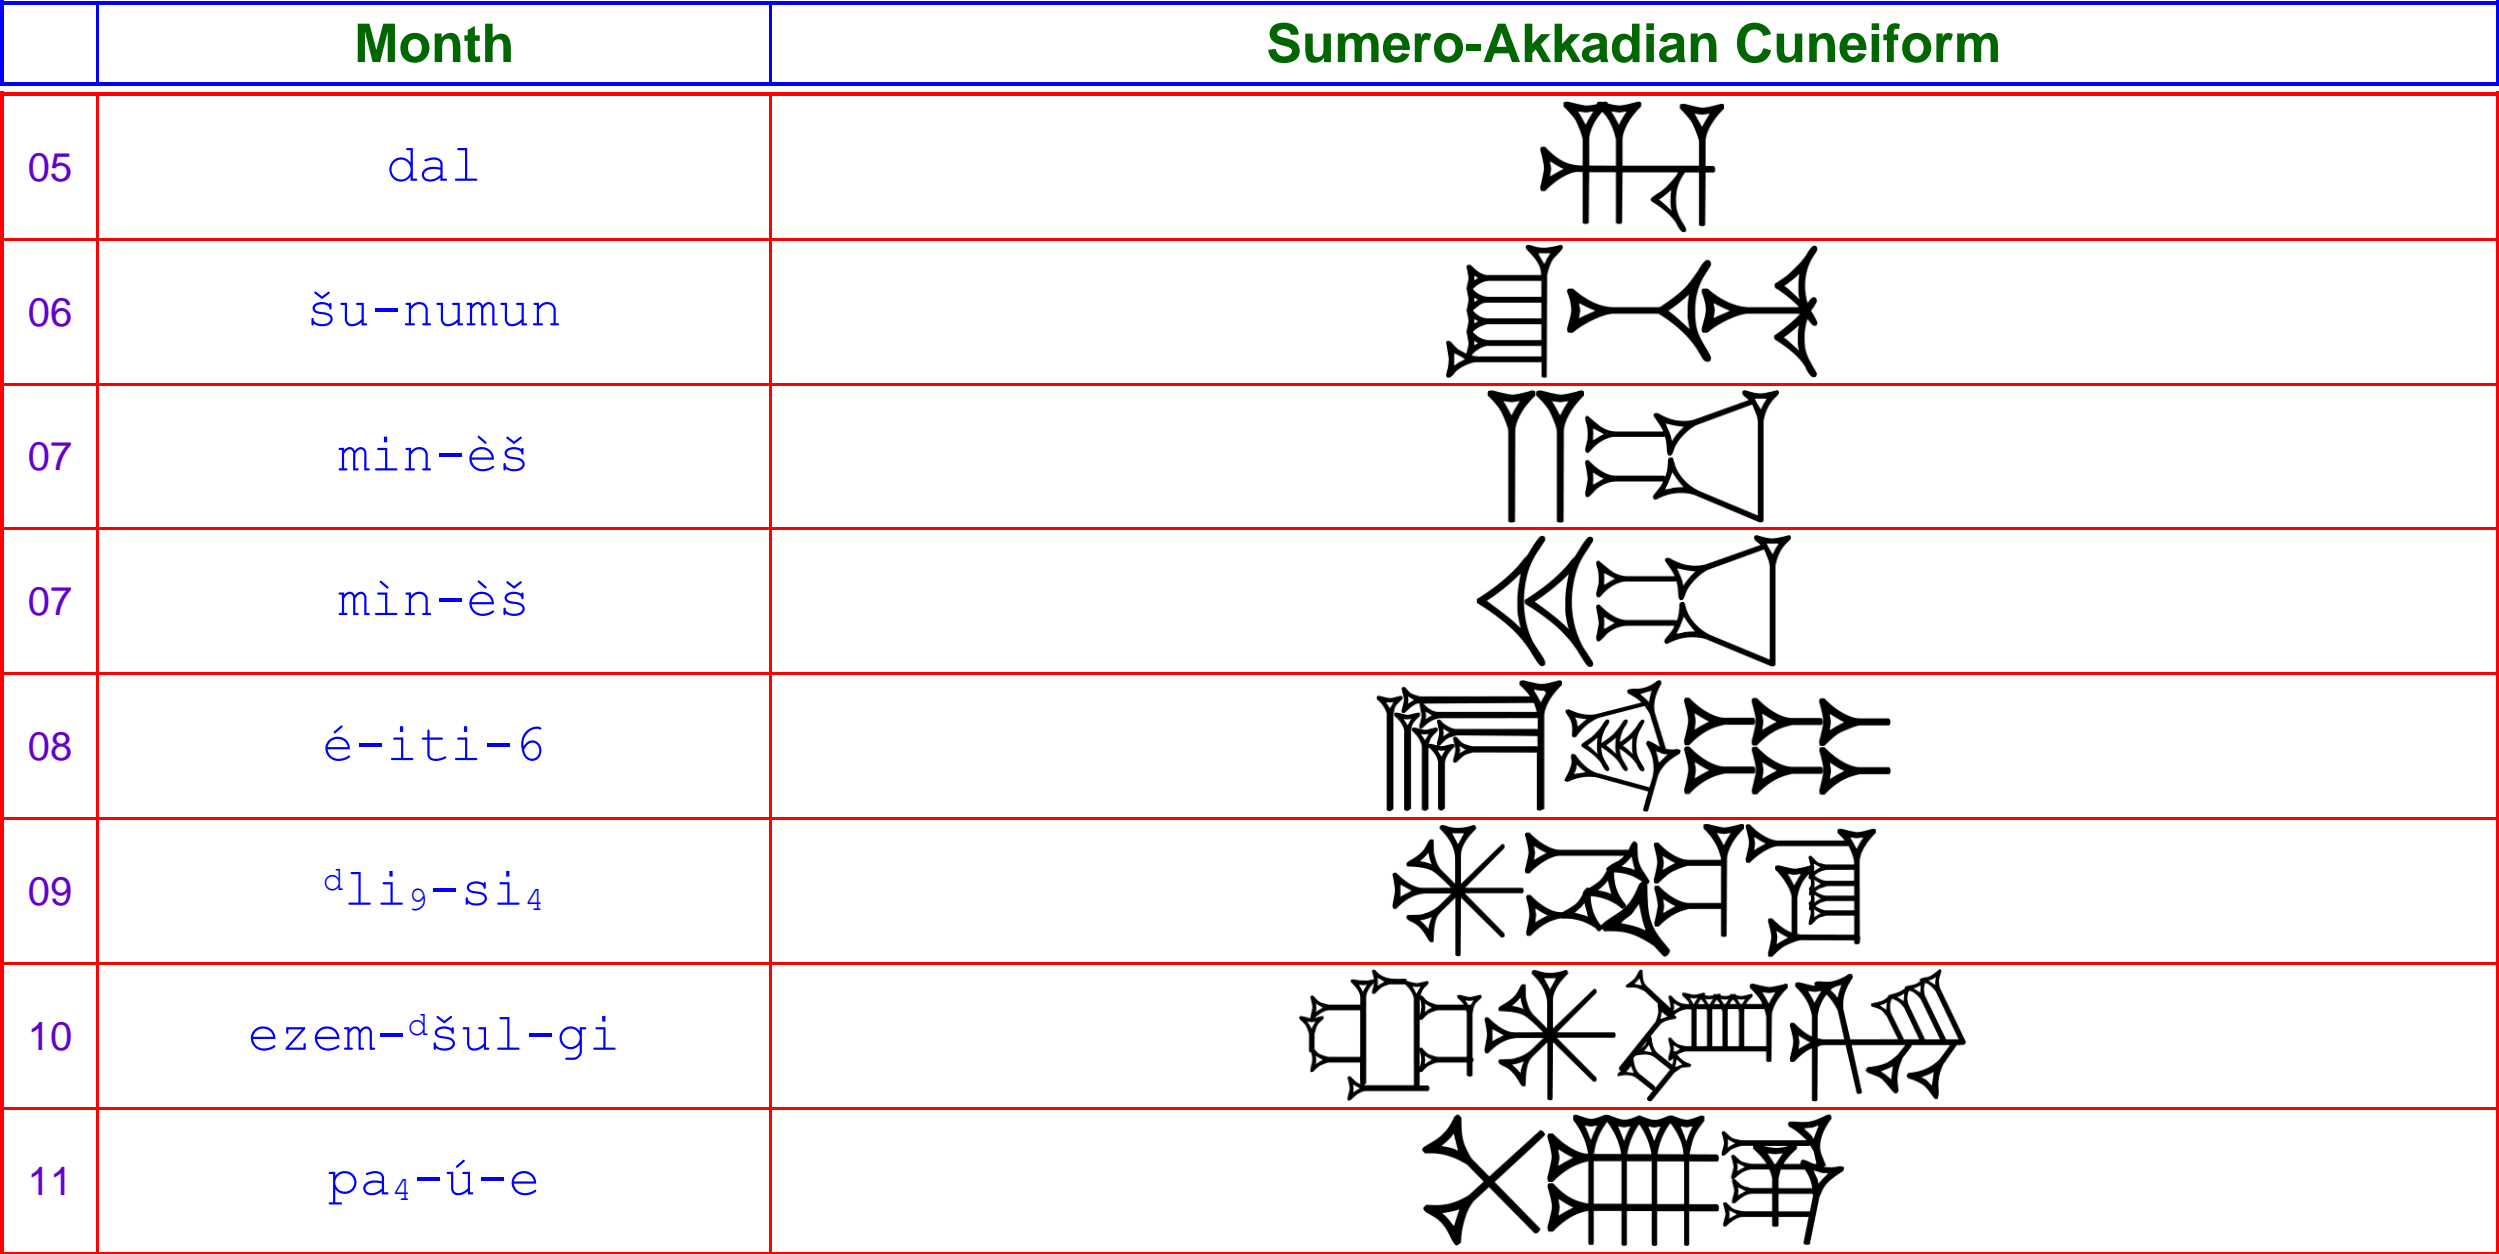 Month Sumero-Akkadian Cuneiform
05 dal 𒊑
06 šu-numun 𒋗𒆰
07 min-èš 𒈫𒀊
07 mìn-èš 𒎙𒀊
08 é-iti-6 𒂍𒌗𒐄
09 ᵈli₉-si₄ 𒀭𒉈𒋜
10 ezem-ᵈšul-gi 𒂡𒀭𒂄𒄀
11 pa₄-ú-e 𒉽𒌑𒂊